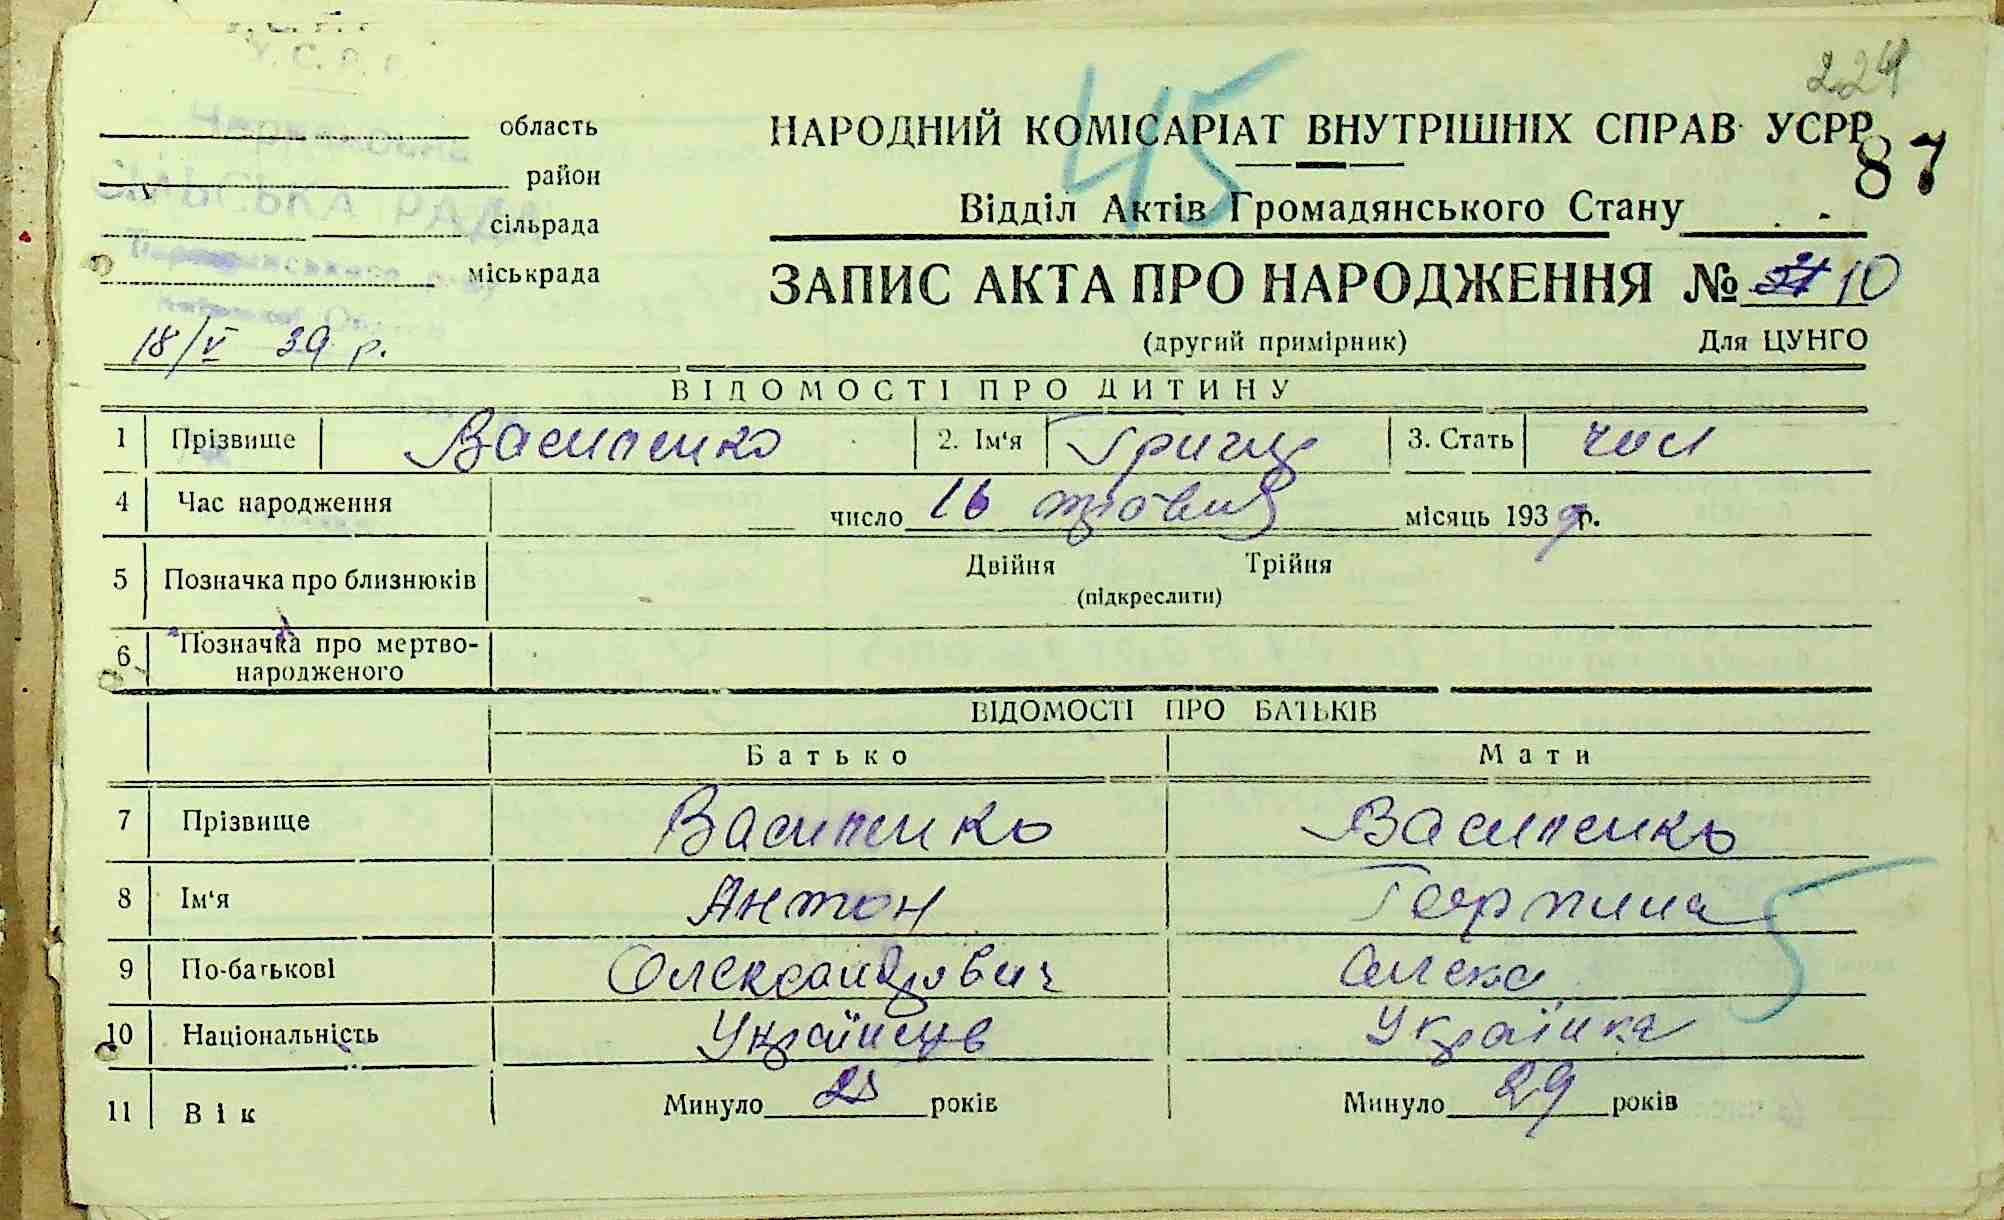 У. С. Р. Р.
224
45
область
НАРОДНИЙ КОМІСАРІАТ ВНУТРІШНІХ СПРАВ УСРР
87
район
СІЛЬСЬКА РАДА
Відділ Актів Громадянського Стану
сільрада
міськрада
ЗАПИС АКТА ПРО НАРОДЖЕННЯ № 10
18/V 39 р.
(другий примірник) Для ЦУНГО
ВІДОМОСТІ ПРО ДИТИНУ
1 Прізвище Василенко 2. Ім'я Григір 3. Стать чол
4 Час народження число 16 травня місяць 1939 р.
5 Позначка про близнюків Двійня Трійня
(підкреслити)
6 Позначка про мертво-
народженого
ВІДОМОСТІ ПРО БАТЬКІВ
Батько Мати
7 Прізвище Василенко Василенко
8 Ім'я Антон Горпина
5
9 По-батькові Олександрович Олекс
10 Національність Українець Українка
11 Вік Минуло років Минуло 29 років